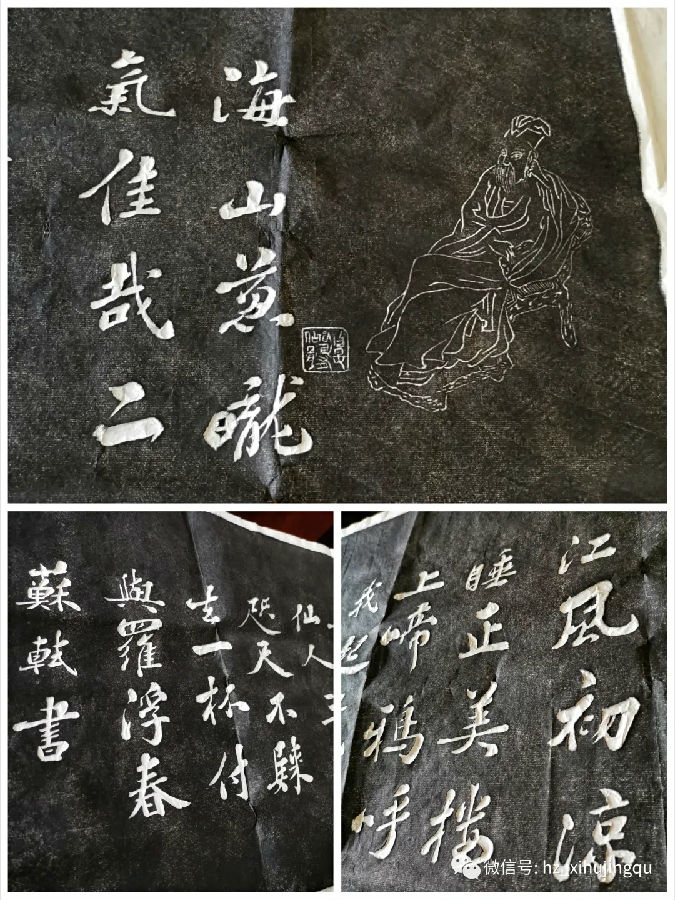 海山葱曨
氣佳哉二
仙人
咫尺不歸
去一杯付
與羅浮春
蘇軾書
江風初涼
睡正美樓
上啼鴉呼
我起
微信号: hz_xihujingqu